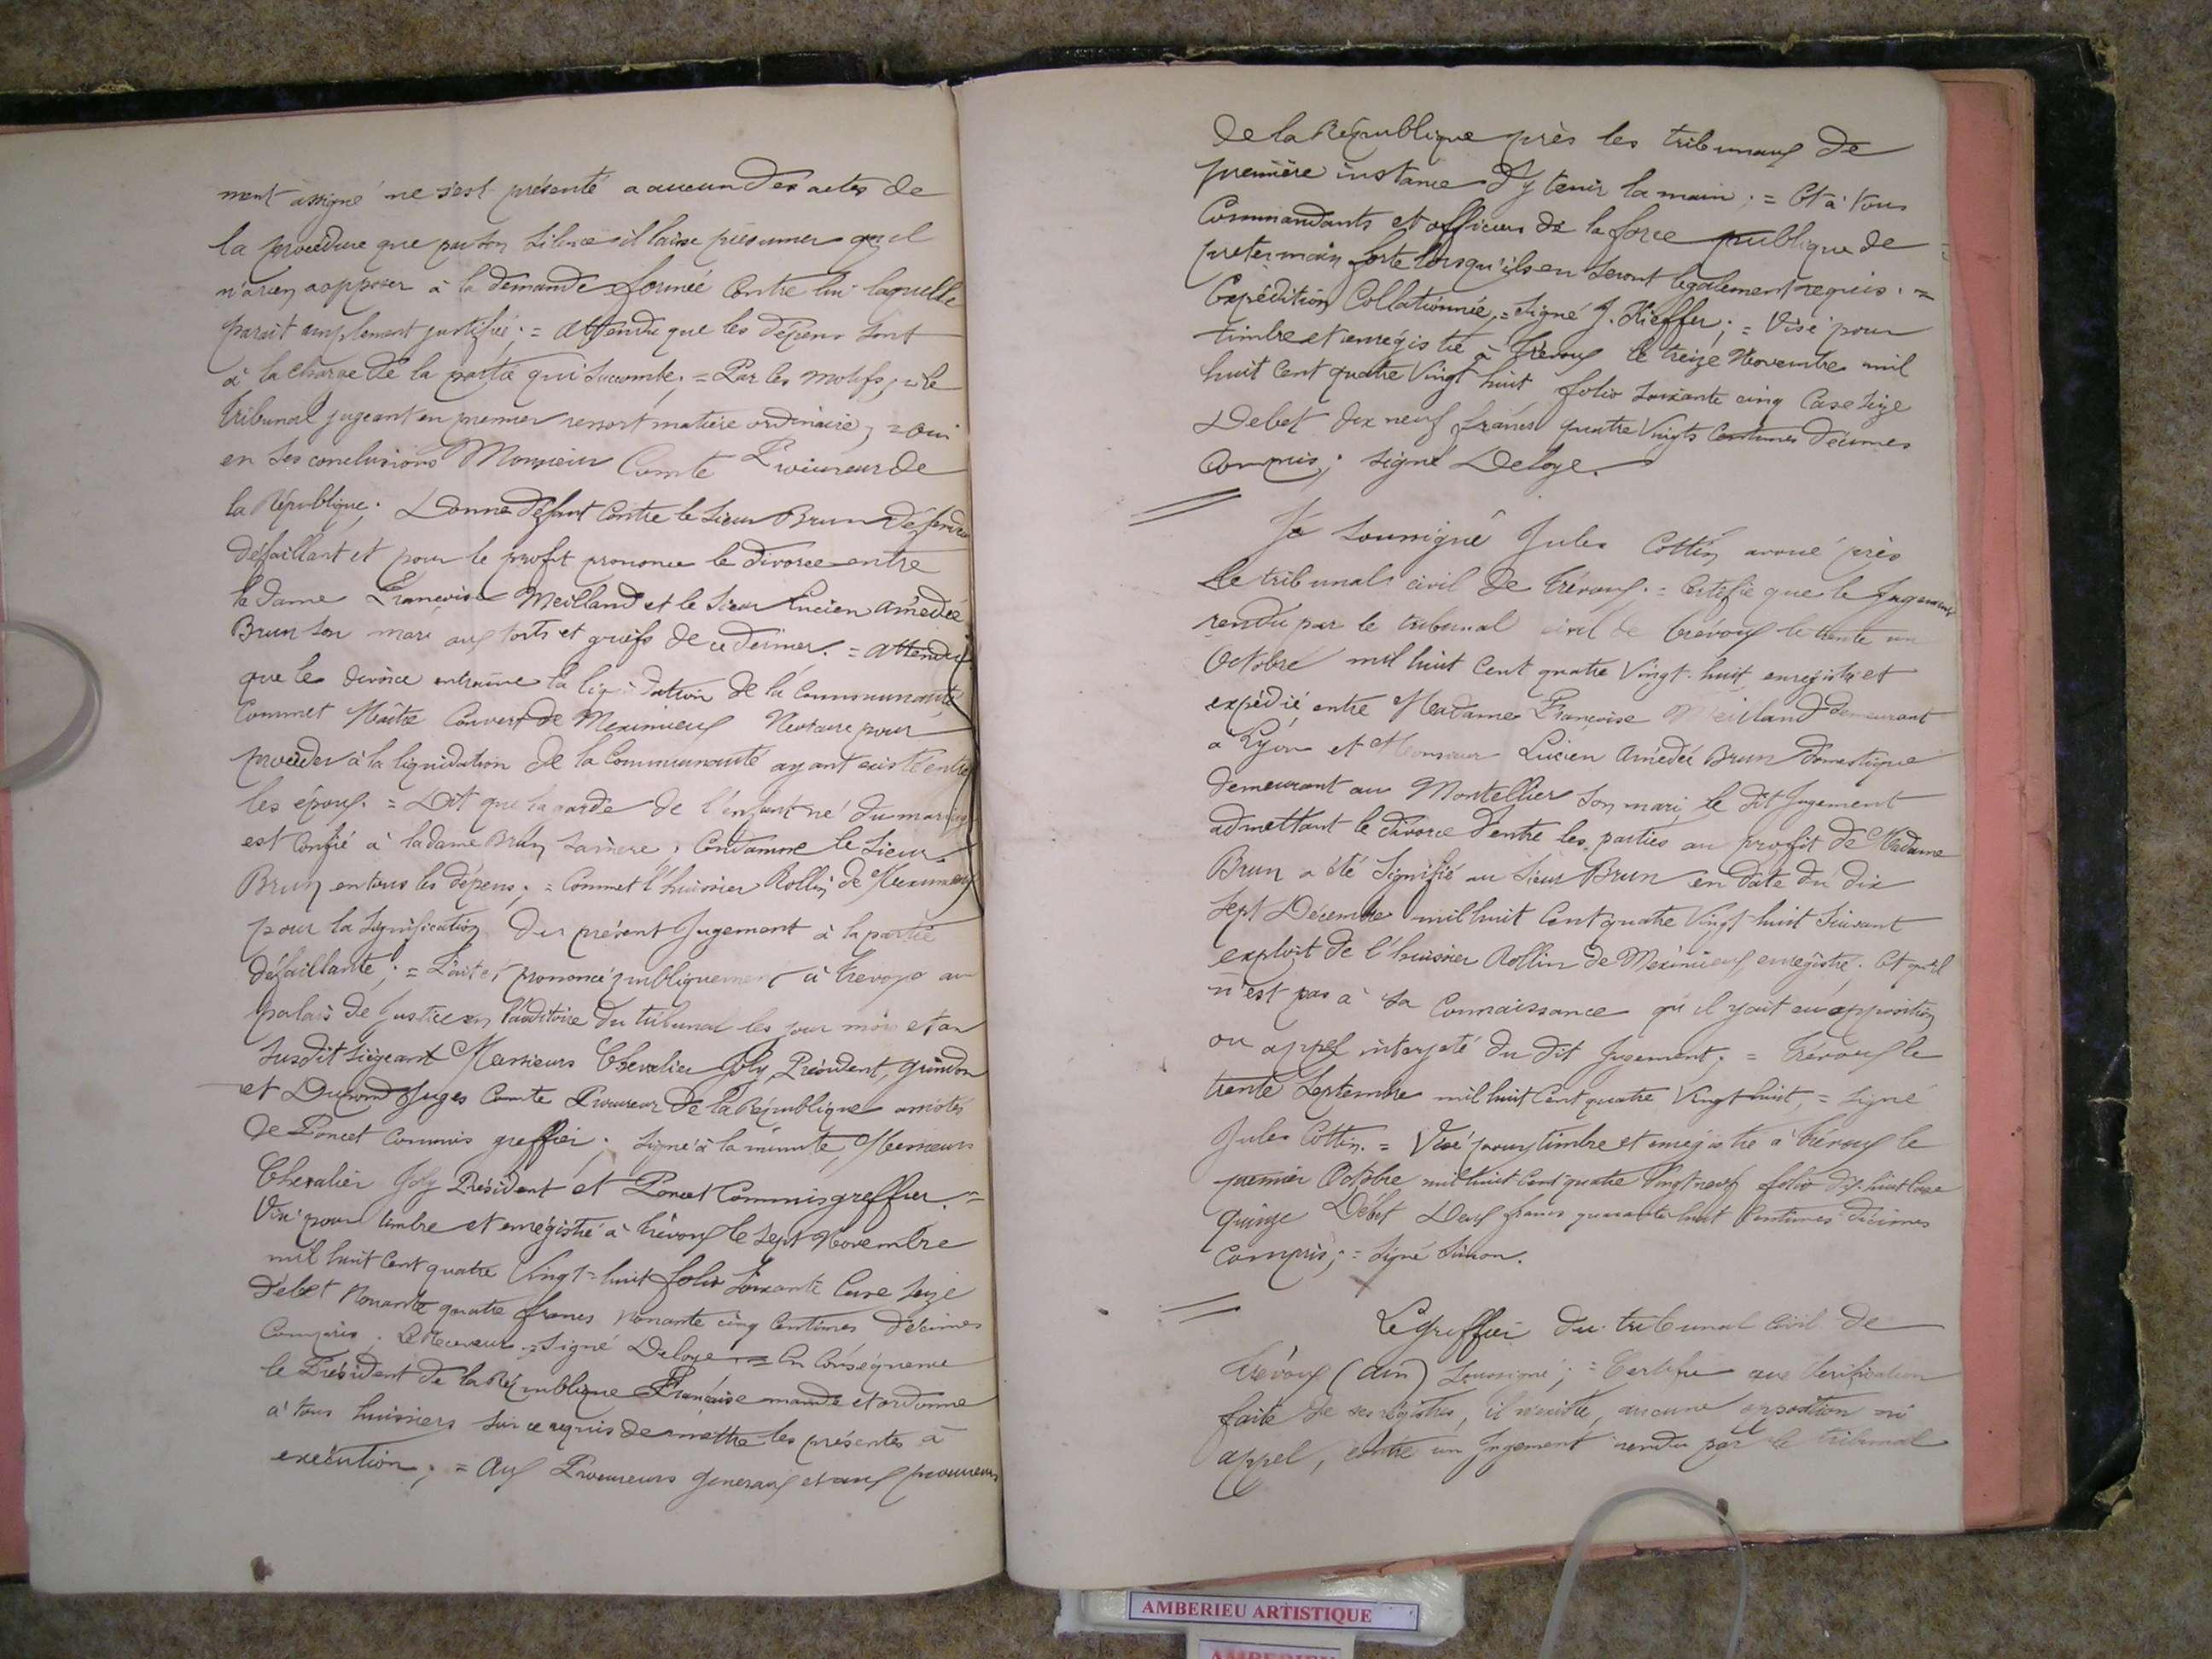 ment assigné ne s'est présenté a aucun des actes de
la procédure que par son silence il laisse présumer qu'il
n'a rien a opposer à la demande formée contre lui laquelle
parait amplement justifiée ; = Attendu que les dépens sont
à la charge de la partie qui succombe ; = Par ces motifs ; = le
tribunal jugeant en premier ressort matière ordinaire ; = Oui
en ses conclusions Monsieur Comte Procureur de
la République. Donne défaut contre le sieur Brun
défaillant et pour le profit prononce le divorce entre
la dame Françoise Meilland et le sieur Lucien Amédée
Brun son mari aux torts et griefs de ce dernier. = Attendu
que le divorce entraine la liquidation de la Communauté
Commet Maître Convert de Meximieux Notaire pour
procéder à la liquidation de la Communauté ayant existé entre
les époux. = Dit que la garde de l'enfant né du mariage
est confié à la dame Brun sa mère ; Condamne le sieur
Brun en tous les dépens ; = Commet l'huissier Rollin de Meximieux
pour la signification du présent Jugement à la partie
défaillante ; = Fait et prononcé publiquement à Trevoux au
palais de Justice en l'auditoire du tribunal les jour mois et an
susdit siégeant Messieurs Chevalier Joly, Président, Grindon
et Dumond Juges Comte Procureur de la République assistés
de Poncet Commis greffier ; signé à la minute, Messieurs
Chevalier Joly Président et Poncet Commis greffier. =
Visé pour timbre et enregistré à Trévoux le sept Novembre
mil huit cent quatre Vingt-huit folio soixante Case seize
débet Nonante quatre francs Nonante cinq Centimes décimes
compris. Le Receveur = Signé Deloye. = En conséquence
le Président de la République Française mande et ordonne
à tous huissiers sur ce requis de mettre les présentes à
exécution ; = Aux Procureurs généraux et aux procureurs
de la République près les tribunaux de
première instance d'y tenir la main ; = Et à tous
Commandants et officiers de la force publique de
preter main forte lorsqu'ils en seront légalement requis. =
Expédition Collationnée, = Signé J. Kieffer ; = Visé pour
timbre et enregistré à Trévoux le treize Novembre mil
huit Cent quatre Vingt huit folio soixante cinq Case seize
Debet dix neuf francs quatre Vingts Centimes décimes
compris ; signé Deloye.
Je soussigné Jules Cottin avoué près
le tribunal civil de Trévoux. = Certifie que le Jugement
rendu par le tribunal civil de Trévoux le trente un
Octobre mil huit Cent quatre Vingt huit enregistré et
expédié entre Madame Françoise Meilland demeurant
à Lyon et Monsieur Lucien Amédée Brun domestique
demeurant au Montellier son mari, le dit Jugement
admettant le divorce d'entre les parties au profit de Madame
Brun a été signifié au sieur Brun en date du dix
sept Décembre mil huit Cent quatre Vingt huit suivant
exploit de l'huissier Rollin de Meximieux, enregistré. Et qu'il
n'est pas à sa connaissance qu'il y ait eu opposition
ou appel interjeté du dit Jugement ; = Trévoux le
trente Septembre mil huit Cent quatre Vingt huit, = Signé
Jules Cottin. = Visé pour timbre et enregistré à Trévoux le
premier Octobre mil huit Cent quatre Vingt neuf folio dix-huit Case
quinze Débet Deux francs quarante huit Centimes décimes
compris ; = Signé Simon.
Le greffier du tribunal civil de
Trévoux (Ain) soussigné ; = Certifie que vérification
faite de ses régistres, il n'existe, aucune opposition ni
appel, contre un Jugement rendu par le tribunal
AMBERIEU ARTISTIQUE
AMBERIEU